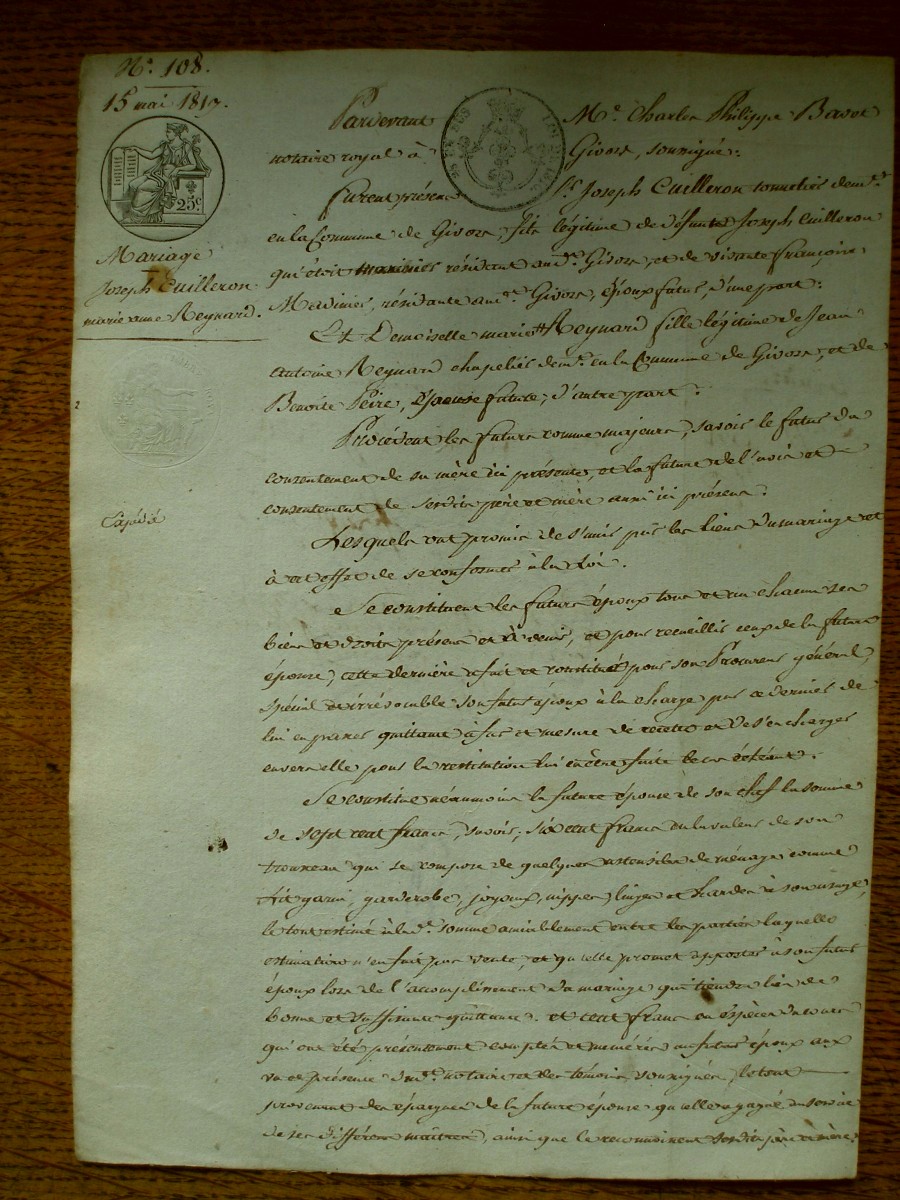 N.º 108.
15 mai 1817.
25.c
Mariage
Joseph Cuilleron
marie anne Reynard.
Expédié
Pardevant M.e Charles Philippe
notaire royal à Givors, soussigné:
furent présens S.r Joseph Cuilleron tonnelier dem.t
en la Commune de Givors, fils légitime de défunte Joseph Cuilleron
qui étoit marinier résidant aud.t Givors, et de vivante françoise
résidante aud.t Givors, époux futur, d'une part:
Et Demoiselle marie Reynard fille légitime de Jean
antoine Reynard chapelier dem.t en la Commune de Givors, et de
Benoite Peire, Epouse future, d'autre part:
Procédent les futurs comme majeurs, savoir le futur du
consentement de sa mère ici présente, et la future de l'avis et
consentement de sesdits père et mère aussi ici présens:
Lesquels ont promis de s'unir par les liens du mariage et
à cet effet de se conformer à la Loi.
Se constituent les futurs époux tous et un chacun ses
biens et droits présens et à venir, et pour recueillir ceux de la future
épouse, cette dernière a fait et constitué pour son Procureur général,
spécial et irrévocable son futur époux à la charge par ce dernier de
lui en passer quittance à fur et mesure de recette et de s'en charger
envers elle pour la restitution lui en être faite le cas échéant.
Se constitue néanmoins la future épouse de son chef la somme
de sept cent francs, savoir; six cent francs en la valeur de son
trousseau qui se compose de quelques ustensiles de ménage comme
lit garni, garderobe, joyaux, nippes, linges et hardes à son usage,
le tout estimé à lad.e somme amiablement entre les parties laquelle
estimation n'en fait pas vente, et qu'elle promet apporter à son futur
époux lors de l'accomplissement du mariage qui tiendra lieu de
bonne et suffisante quittance. et cent francs en espèces
qui ont été présentement comptés et numérés au futur époux aux
vu et présence du notaire et des témoins soussignés, le tout
provenant des épargnes de la future épouse qu'elle a gagné au service
de ses différens maîtres, ainsi que le reconnoissent sesdits père et mère,